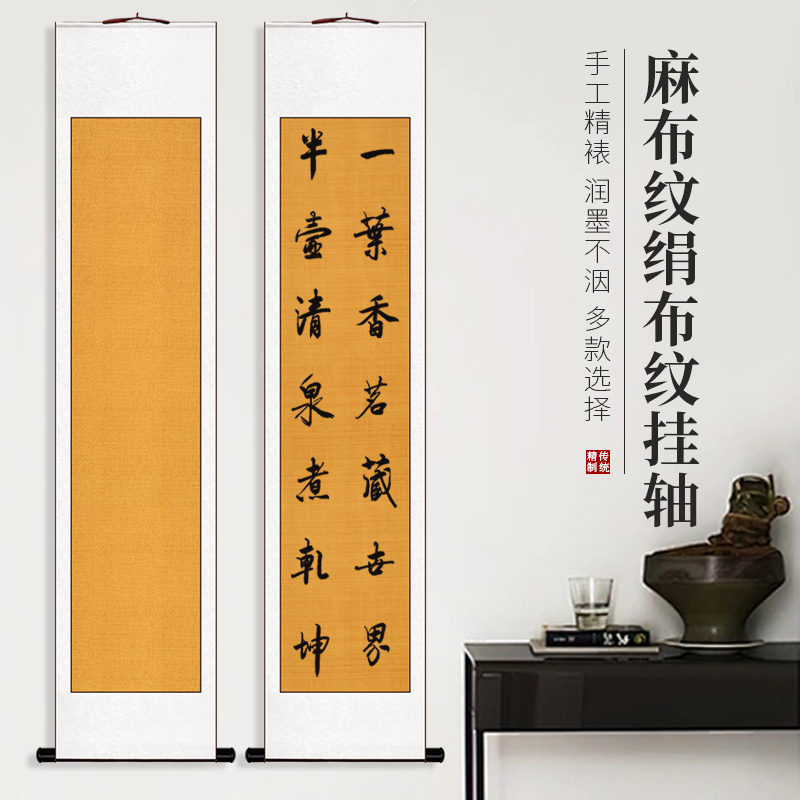 麻布纹绢布纹挂轴
手工精裱 润墨不洇 多款选择
传统
精制
一葉香茗藏世界
半壺清泉煮乾坤